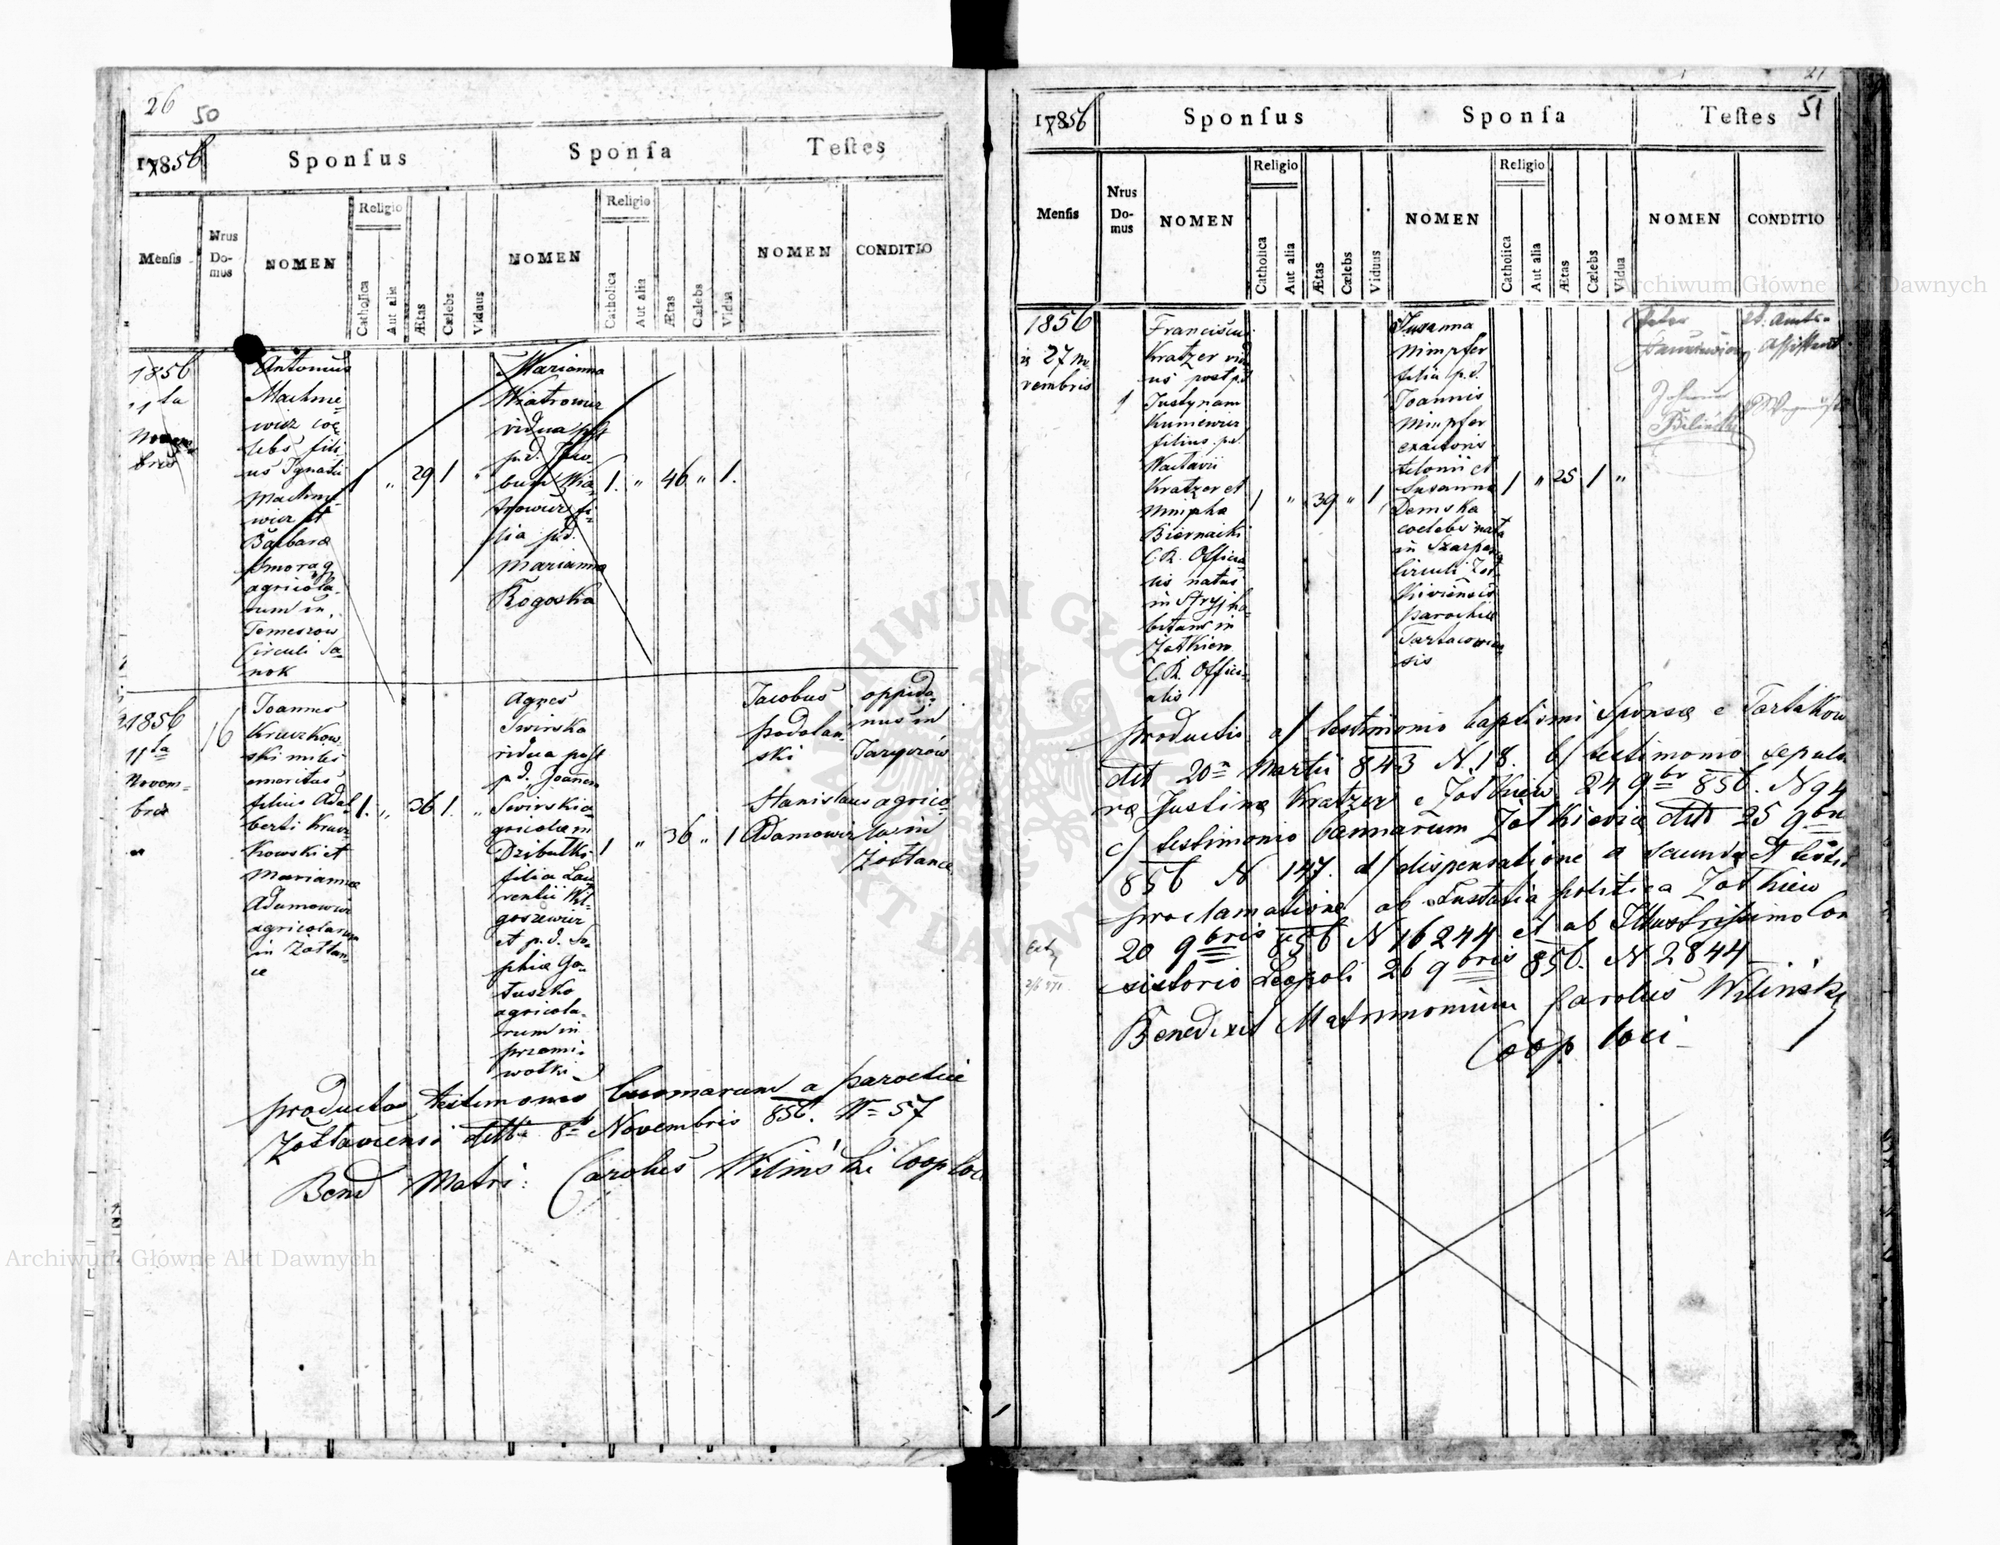 26
50
1856
Sponsus
Sponsa
Testes
Mensis
Nrus Do-mus
NOMEN
Religio
Catholica
Aut alia
Ætas
Cælebs
Viduus
NOMEN
Religio
Catholica
Aut alia
Ætas
Cælebs
Vidua
NOMEN
CONDITIO
1856
11ta
Novem
bris
Antonius
Machne-
wicz coe
lebs fili
us Ignatii
Machne-
wicz et
Barbara
Smorag
agricola-
rum in
Temeszow
Circuli Sa-
nok
1 " 29 1 "
Marianna
Wiatrowicz
vidua post
p.d. Jaco
bum Wia-
trowicz fi-
lia p.d.
Marianna
Rogoska
1. " 46 " 1.
1856
11ta
Novem-
bris
16
Joannes
Kruczkow
ski miles
emeritus
filius Adal
berti Krucz
kowski et
Marianna
Adamowicz
agricolarum
in Żołtan
ce
1. " 36 1. "
Agnes
Swirska
vidua post
p.d. Joannem
Swirski a-
gricola in
Dzibulki
filia Lau
rentii Wol
goszewicz
et p.d. So-
phia Go-
tuszko
agricola-
rum in
przemi-
wolki
1 " 36 " 1
Jacobus
podolan
ski
oppida-
nus in
Jaryczow
Stanislaus
Adamowicz
agrico
la in
Żołtance
productas testimonio bannorum a parochia
Żołtaniensi ddtto 8a Novembris 856. N= 57
Bened Matri: Carolus Wiliński Coop loci
51
1856
Sponsus
Sponsa
Testes
Mensis
Nrus Do-mus
NOMEN
Religio
Catholica
Aut alia
Ætas
Cælebs
Viduus
NOMEN
Religio
Catholica
Aut alia
Ætas
Cælebs
Vidua
NOMEN
CONDITIO
1856
27 No
vembris
1
Franciscus
Kratzer vid
us post p.d
Justynam
Kuniewicz
filius p.d.
Waclavii
Kratzer et
Nimpha
Biernacki
C.R. Officia
lis natus
in Stryj ha-
bitans in
Żołkiew
C.R. Offici-
alis
1 " 39 " 1
Susanna
Nimpfer
filia p.d.
Joannis
Nimpfer
exactoris
telonii et
Susanna
Demska
coelebs nata
in Szarpan
Circuli Żoł-
kieviensis
parochia
Tartacovien-
sis
1 " 25 1 "
Peter
k. Amts-
Assistent
Johann
Biliński
productis a/ testimonio baptismi Sponsæ e Tartakow
ddt 20a Martii 843 N. 18. b/ testimonio sepultu
ræ Justinæ Kratzer e Żołkiew 24 9br 856. N 94
c/ testimonio bannarum Żołkieviæ ddt 25 9bris
856 N 147. d/ dispensatione a secunda et tertia
proclamatione ab Instatia politica Żołkiew
20 9bris 856 N 16244 et ab Illustrissimo Con
sistorio Leopoli 26 9bris 856. N 2844
Benedixit Matrimonium Carolus Wiliński
Coop loci
Archiwum Główne Akt Dawnych
Archiwum Główne Akt Dawnych
ARCHIWUM GŁÓWNE AKT DAWNYCH